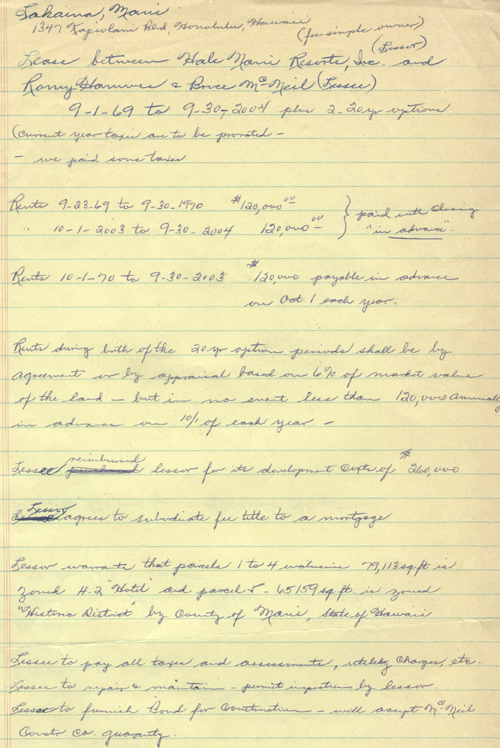 Lahaina, Maui
1347 Kapiolani Blvd, Honolulu, Hawaii
(fee simple owner)
(Lessor)
Lease between Hale Maui Resorts, Inc. and
Romy Hammes & Bruce McNeil (Lessee)
9-1-69 to 9-30-2004 plus 2-20yr options
(current year taxes are to be prorated -
- we paid some taxes
Rents 9-23-69 to 9-30-1970 $120,000.00
" 10-1-2003 to 9-30-2004 120,000.00
} paid with closing
"in advance".
Rents 10-1-70 to 9-30-2003 $120,000 payable in advance
on Oct 1 each year.
Rents during both of the 20 yr option periods shall be by
agreement or by appraisal based on 6% of market value
of the land - but in no event less than 120,000 annually
in advance on 10/1 of each year. -
reimbursed
Lessee purchased lessor for its development costs of $260,000
Lessor
agrees to subordinate fee title to a mortgage
Lessor warrants that parcels 1 to 4 inclusive 79,113 sq ft is
zoned H-2 "Hotel" and parcel 5 - 65159 sq ft. is zoned
"Historic District" by County of Maui, State of Hawaii
Lessee to pay all taxes and assessments, utility charges, etc.
Lessee to repair & maintain - permit inspection by lessor
Lessee to furnish Bond for Construction - will accept McNeil
Constr Co guaranty.